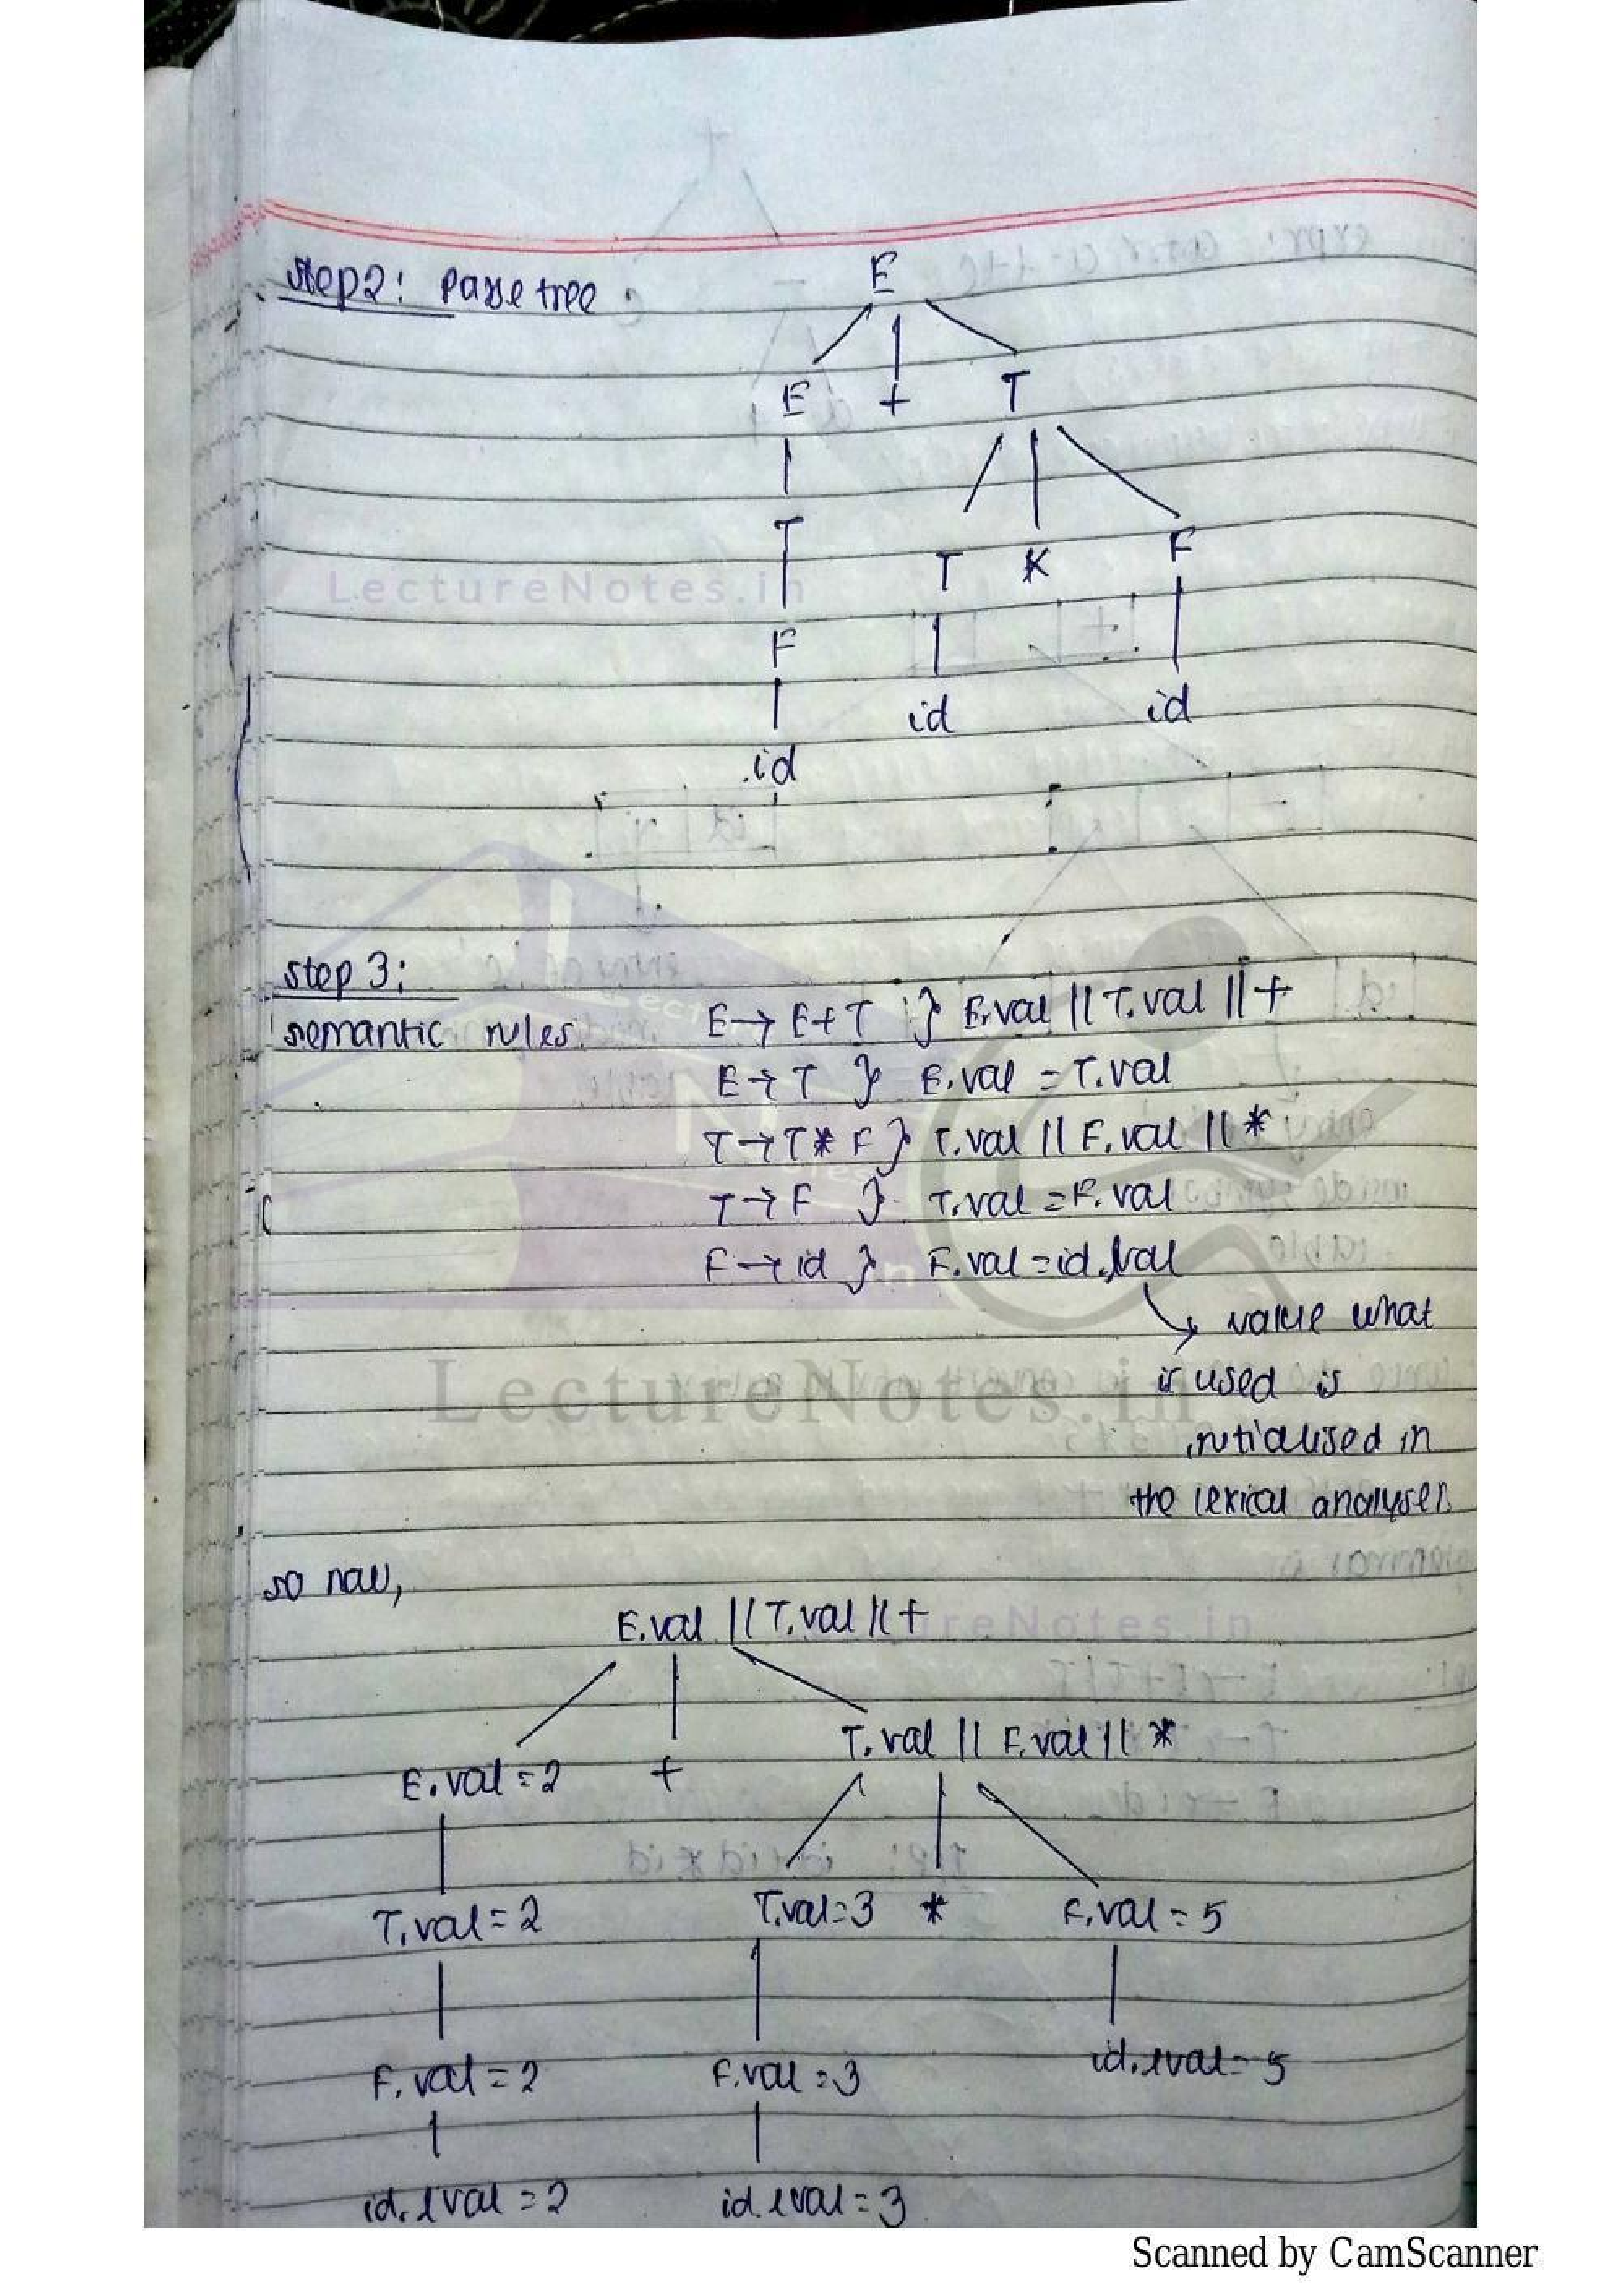 step2: Parse tree
E
E + T
T
T * F
F
id id
id
LectureNotes.in
step 3:
semantic rules. E → E+T } E.val || T.val || +
E → T } E.val = T.val
T → T * F } T.val || F.val || *
T → F } T.val = F.val
F → id } F.val = id.lval
value what
is used is
initialised in
the lexical analyser.
LectureNotes.in
so now,
E.val || T.val || +
LectureNotes.in
T.val || F.val || *
E.val = 2 +
T.val = 2 T.val = 3 * F.val = 5
F.val = 2 F.val = 3 id.lval = 5
id.lval = 2 id.lval = 3
Scanned by CamScanner